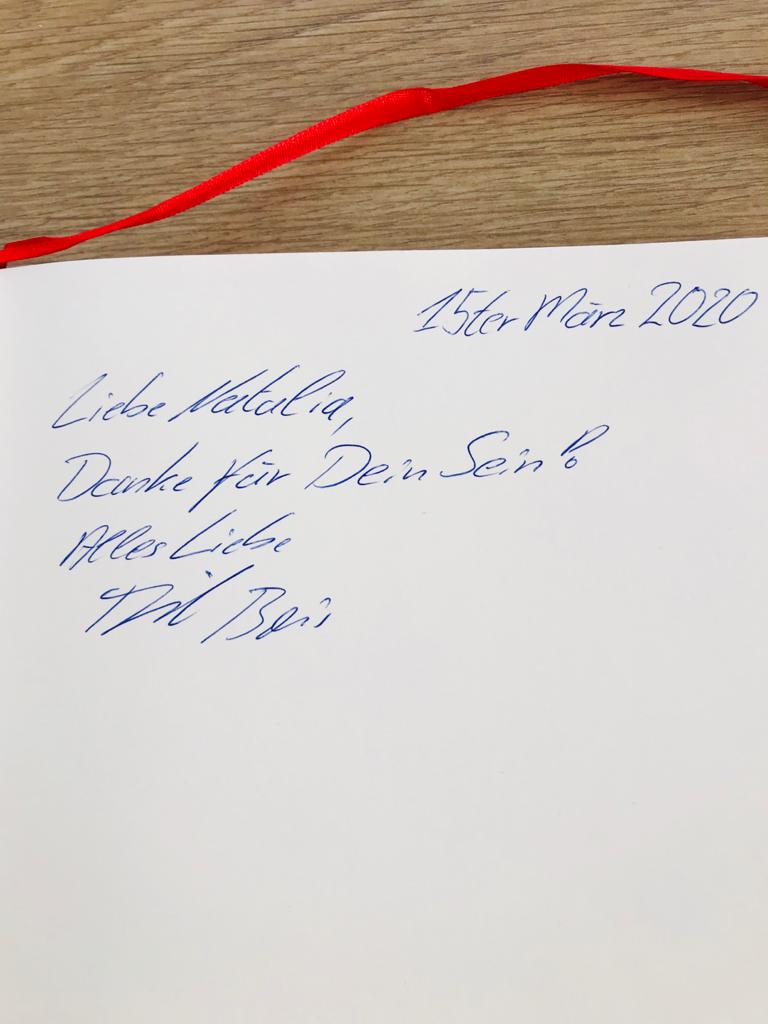 15ter März 2020
Liebe Natalia,
Danke für Dein Sein!
Alles Liebe